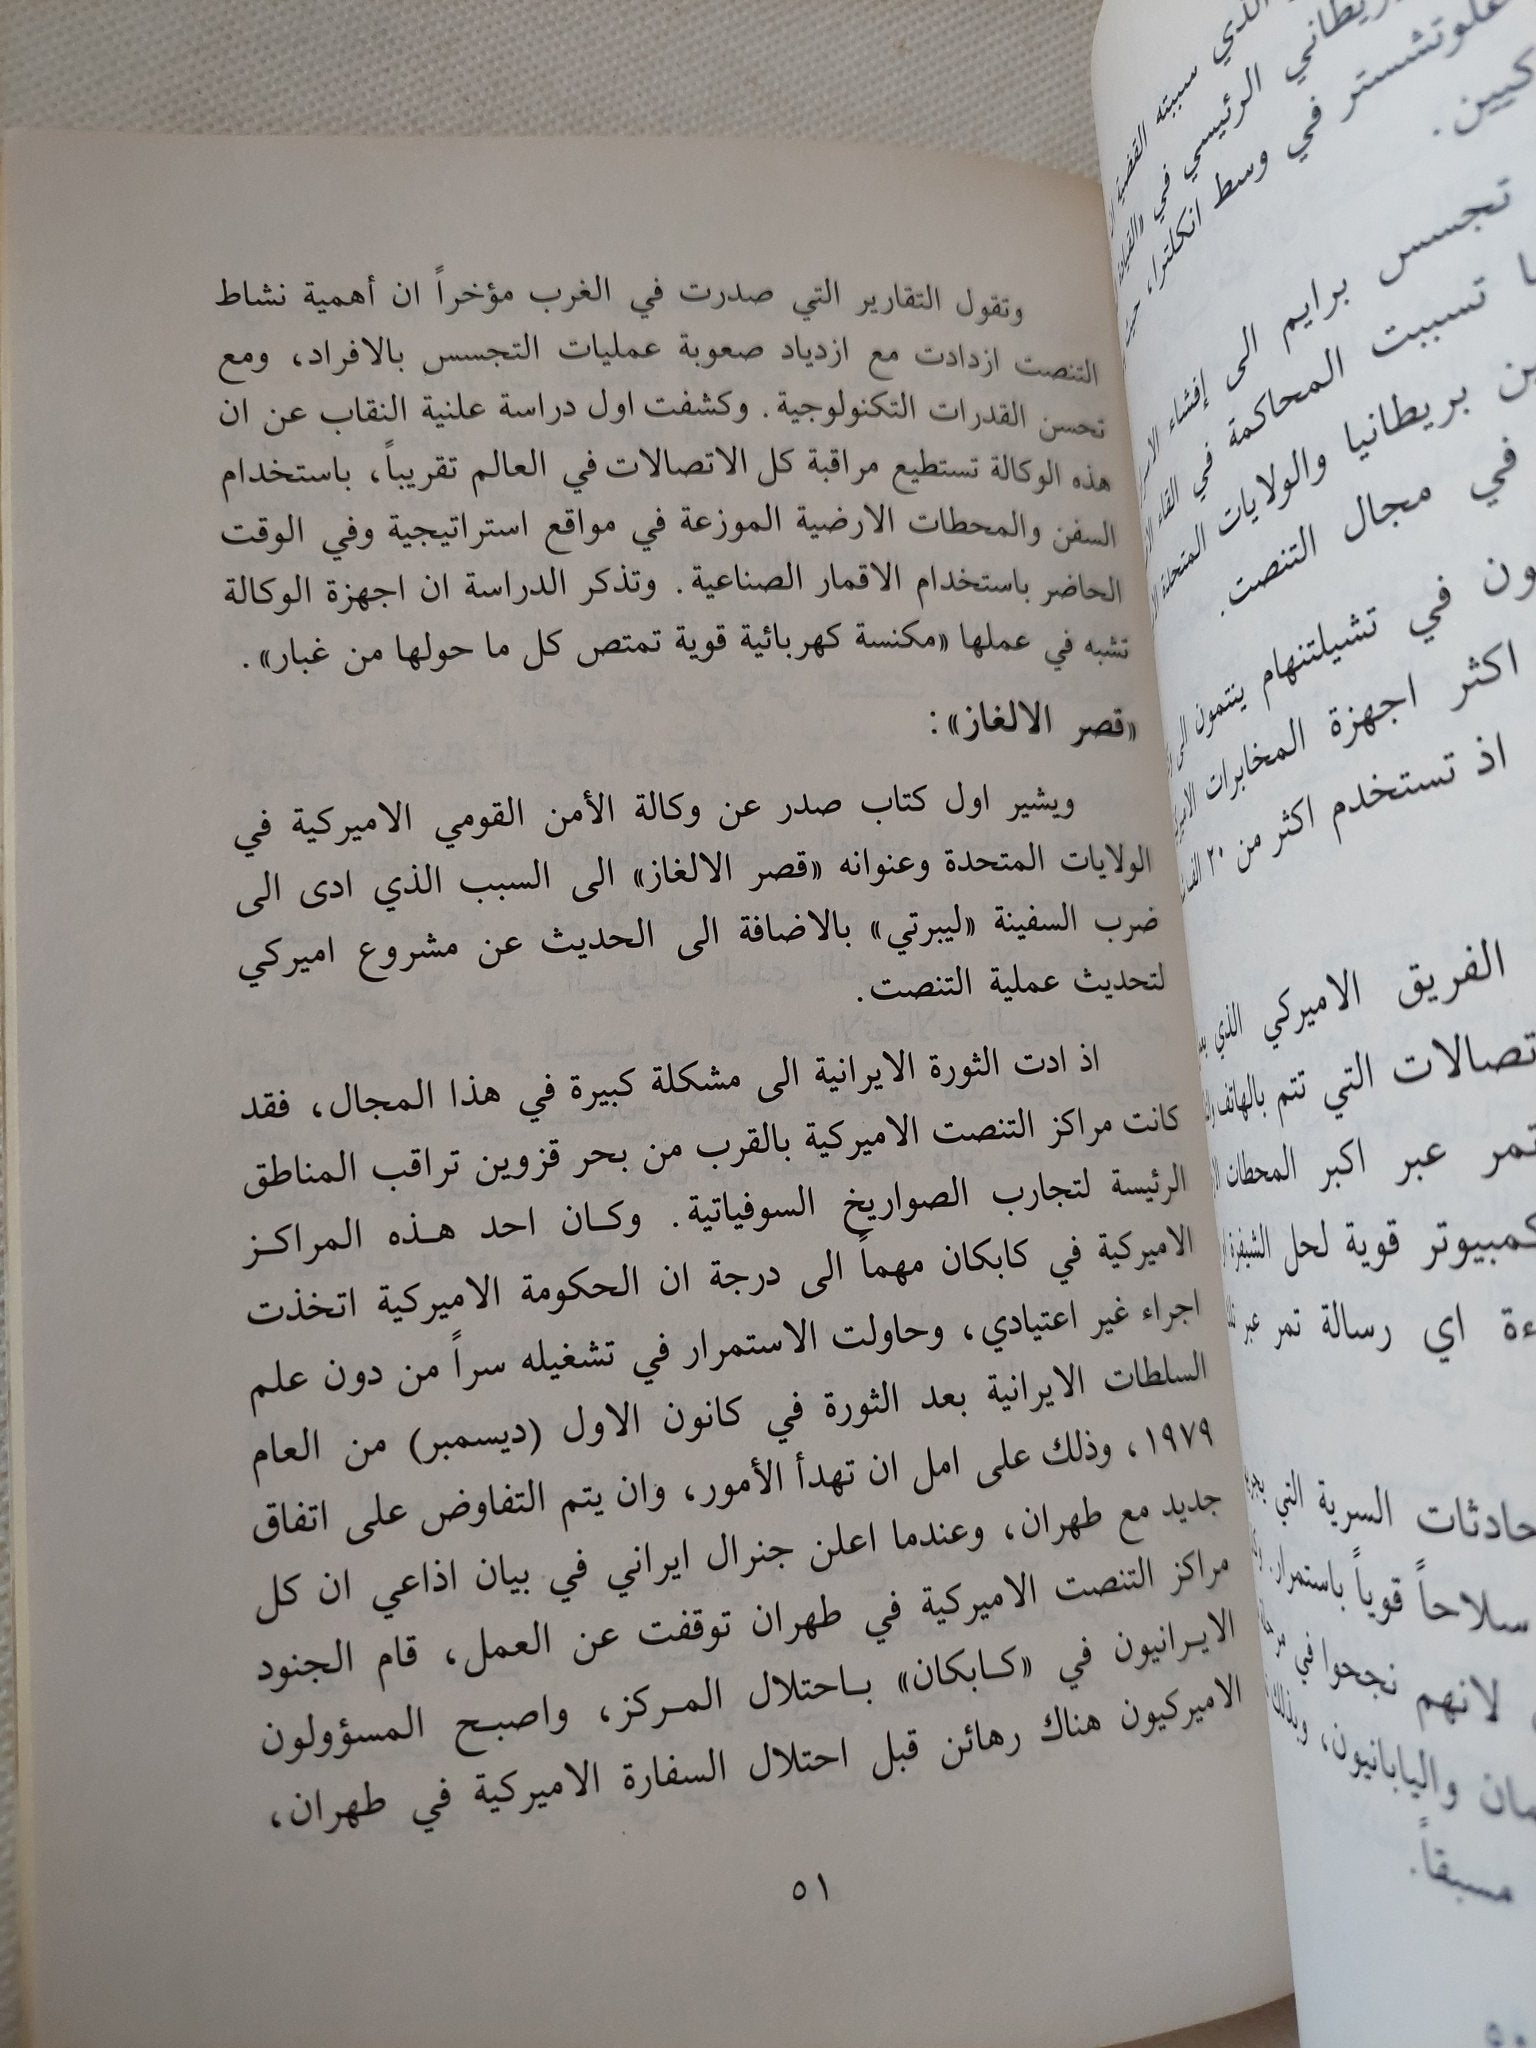 وتقول التقارير التي صدرت في الغرب مؤخراً ان أهمية نشاط
التنصت ازدادت مع ازدياد صعوبة عمليات التجسس بالافراد، ومع
تحسن القدرات التكنولوجية. وكشفت اول دراسة علنية النقاب عن ان
هذه الوكالة تستطيع مراقبة كل الاتصالات في العالم تقريباً، باستخدام
السفن والمحطات الارضية الموزعة في مواقع استراتيجية وفي الوقت
الحاضر باستخدام الاقمار الصناعية. وتذكر الدراسة ان اجهزة الوكالة
تشبه في عملها «مكنسة كهربائية قوية تمتص كل ما حولها من غبار».
«قصر الالغاز»:
ويشير اول كتاب صدر عن وكالة الأمن القومي الاميركية في
الولايات المتحدة وعنوانه «قصر الالغاز» الى السبب الذي ادى الى
ضرب السفينة «ليبرتي» بالاضافة الى الحديث عن مشروع اميركي
لتحديث عملية التنصت.
اذ ادت الثورة الايرانية الى مشكلة كبيرة في هذا المجال، فقد
كانت مراكز التنصت الاميركية بالقرب من بحر قزوين تراقب المناطق
الرئيسة لتجارب الصواريخ السوفياتية. وكان احد هذه المراكز
الاميركية في كابكان مهماً الى درجة ان الحكومة الاميركية اتخذت
اجراء غير اعتيادي، وحاولت الاستمرار في تشغيله سراً من دون علم
السلطات الايرانية بعد الثورة في كانون الاول (ديسمبر) من العام
١٩٧٩، وذلك على امل ان تهدأ الأمور، وان يتم التفاوض على اتفاق
جديد مع طهران، وعندما اعلن جنرال ايراني في بيان اذاعي ان كل
مراكز التنصت الاميركية في طهران توقفت عن العمل، قام الجنود
الايرانيون في «كابكان» باحتلال المركز، واصبح المسؤولون
الاميركيون هناك رهائن قبل احتلال السفارة الاميركية في طهران،
٥١
الذي سببته القضية
الرئيسي في
غلوتشستر في وسط انكلترا،
تجسس برايم الى إفشاء
تسببت المحاكمة في القاء
بريطانيا والولايات المتحدة
في مجال التنصت.
في تشيلتنهام ينتمون الى
اكثر اجهزة المخابرات
اذ تستخدم اكثر من ٢٠
الفريق الاميركي الذي
التي تتم بالهاتف
تمر عبر اكبر المحطات
قوية لحل الشيفرة
اي رسالة تمر عبر
السرية التي
سلاحاً قوياً باستمرار.
لانهم نجحوا في
واليابانيون،
مسبقاً.